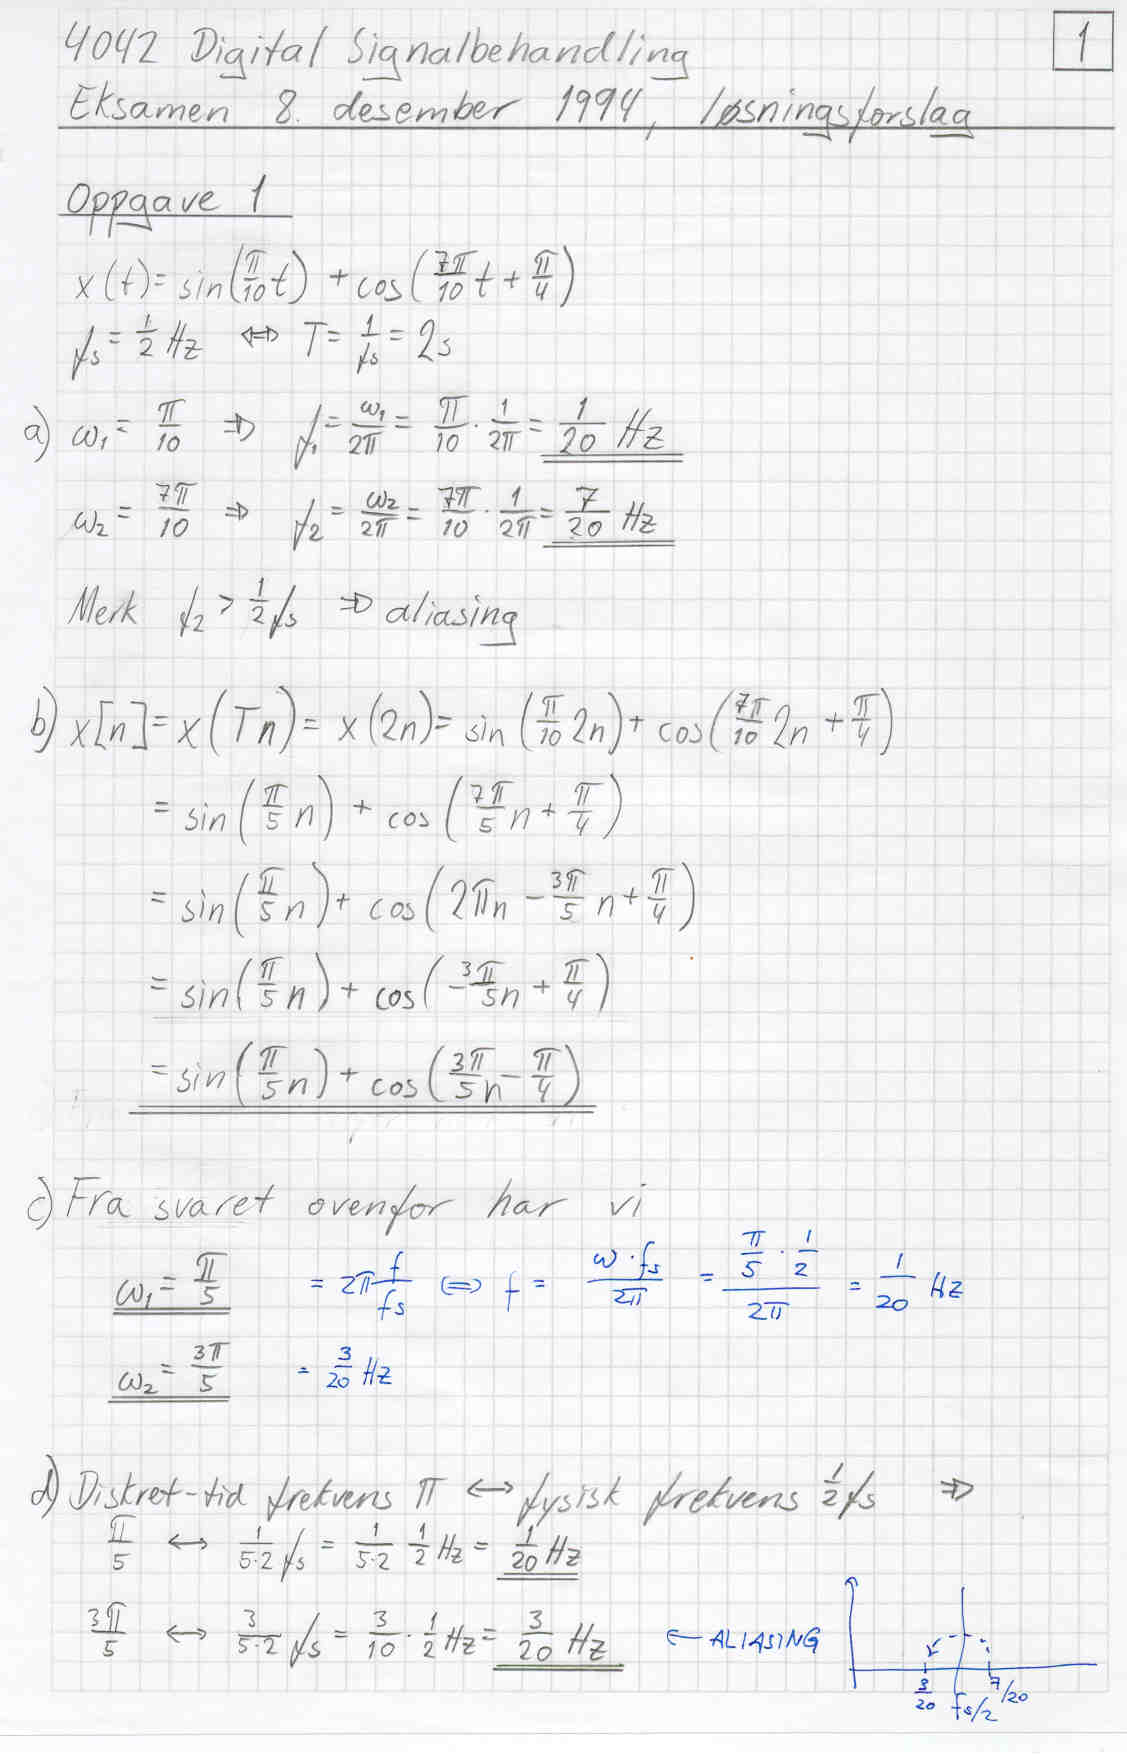 4042 Digital Signalbehandling
1
Eksamen 8. desember 1994, løsningsforslag
Oppgave 1
x(t) = sin(π/10 t) + cos(7π/10 t + π/4)
fs = 1/2 Hz ⇔ T = 1/fs = 2s
a) ω1 = π/10 ⇒ f1 = ω1/2π = π/10 · 1/2π = 1/20 Hz
ω2 = 7π/10 ⇒ f2 = ω2/2π = 7π/10 · 1/2π = 7/20 Hz
Merk f2 > 1/2 fs ⇒ aliasing
b) x[n] = x(Tn) = x(2n) = sin(π/10 2n) + cos(7π/10 2n + π/4)
= sin(π/5 n) + cos(7π/5 n + π/4)
= sin(π/5 n) + cos(2πn - 3π/5 n + π/4)
= sin(π/5 n) + cos(-3π/5 n + π/4)
= sin(π/5 n) + cos(3π/5 n - π/4)
c) Fra svaret ovenfor har vi
ω1 = π/5 = 2π f/fs ⇔ f = ω·fs/2π = (π/5 · 1/2)/2π = 1/20 Hz
ω2 = 3π/5 = 3/20 Hz
d) Diskret-tid frekvens π ↔ fysisk frekvens 1/2 fs ⇒
π/5 ↔ 1/5·2 fs = 1/5·2 1/2 Hz = 1/20 Hz
3π/5 ↔ 3/5·2 fs = 3/10 · 1/2 Hz = 3/20 Hz ← ALIASING
3/20 fs/2 7/20